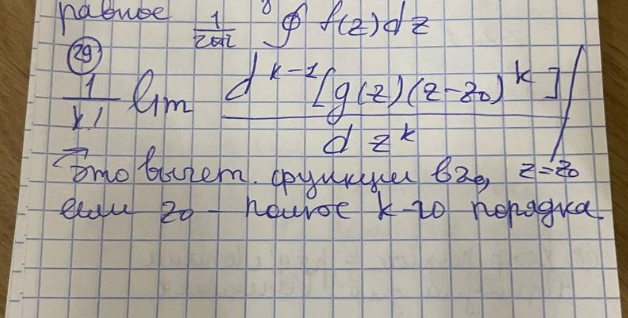 равное 1/2πi ∮ f(z)dz
29
1/k! lim d^{k-1}[g(z)(z-z₀)^k] / dz^k |
z=z₀
Это вычет функции в z₀,
если z₀ - полюс k-го порядка